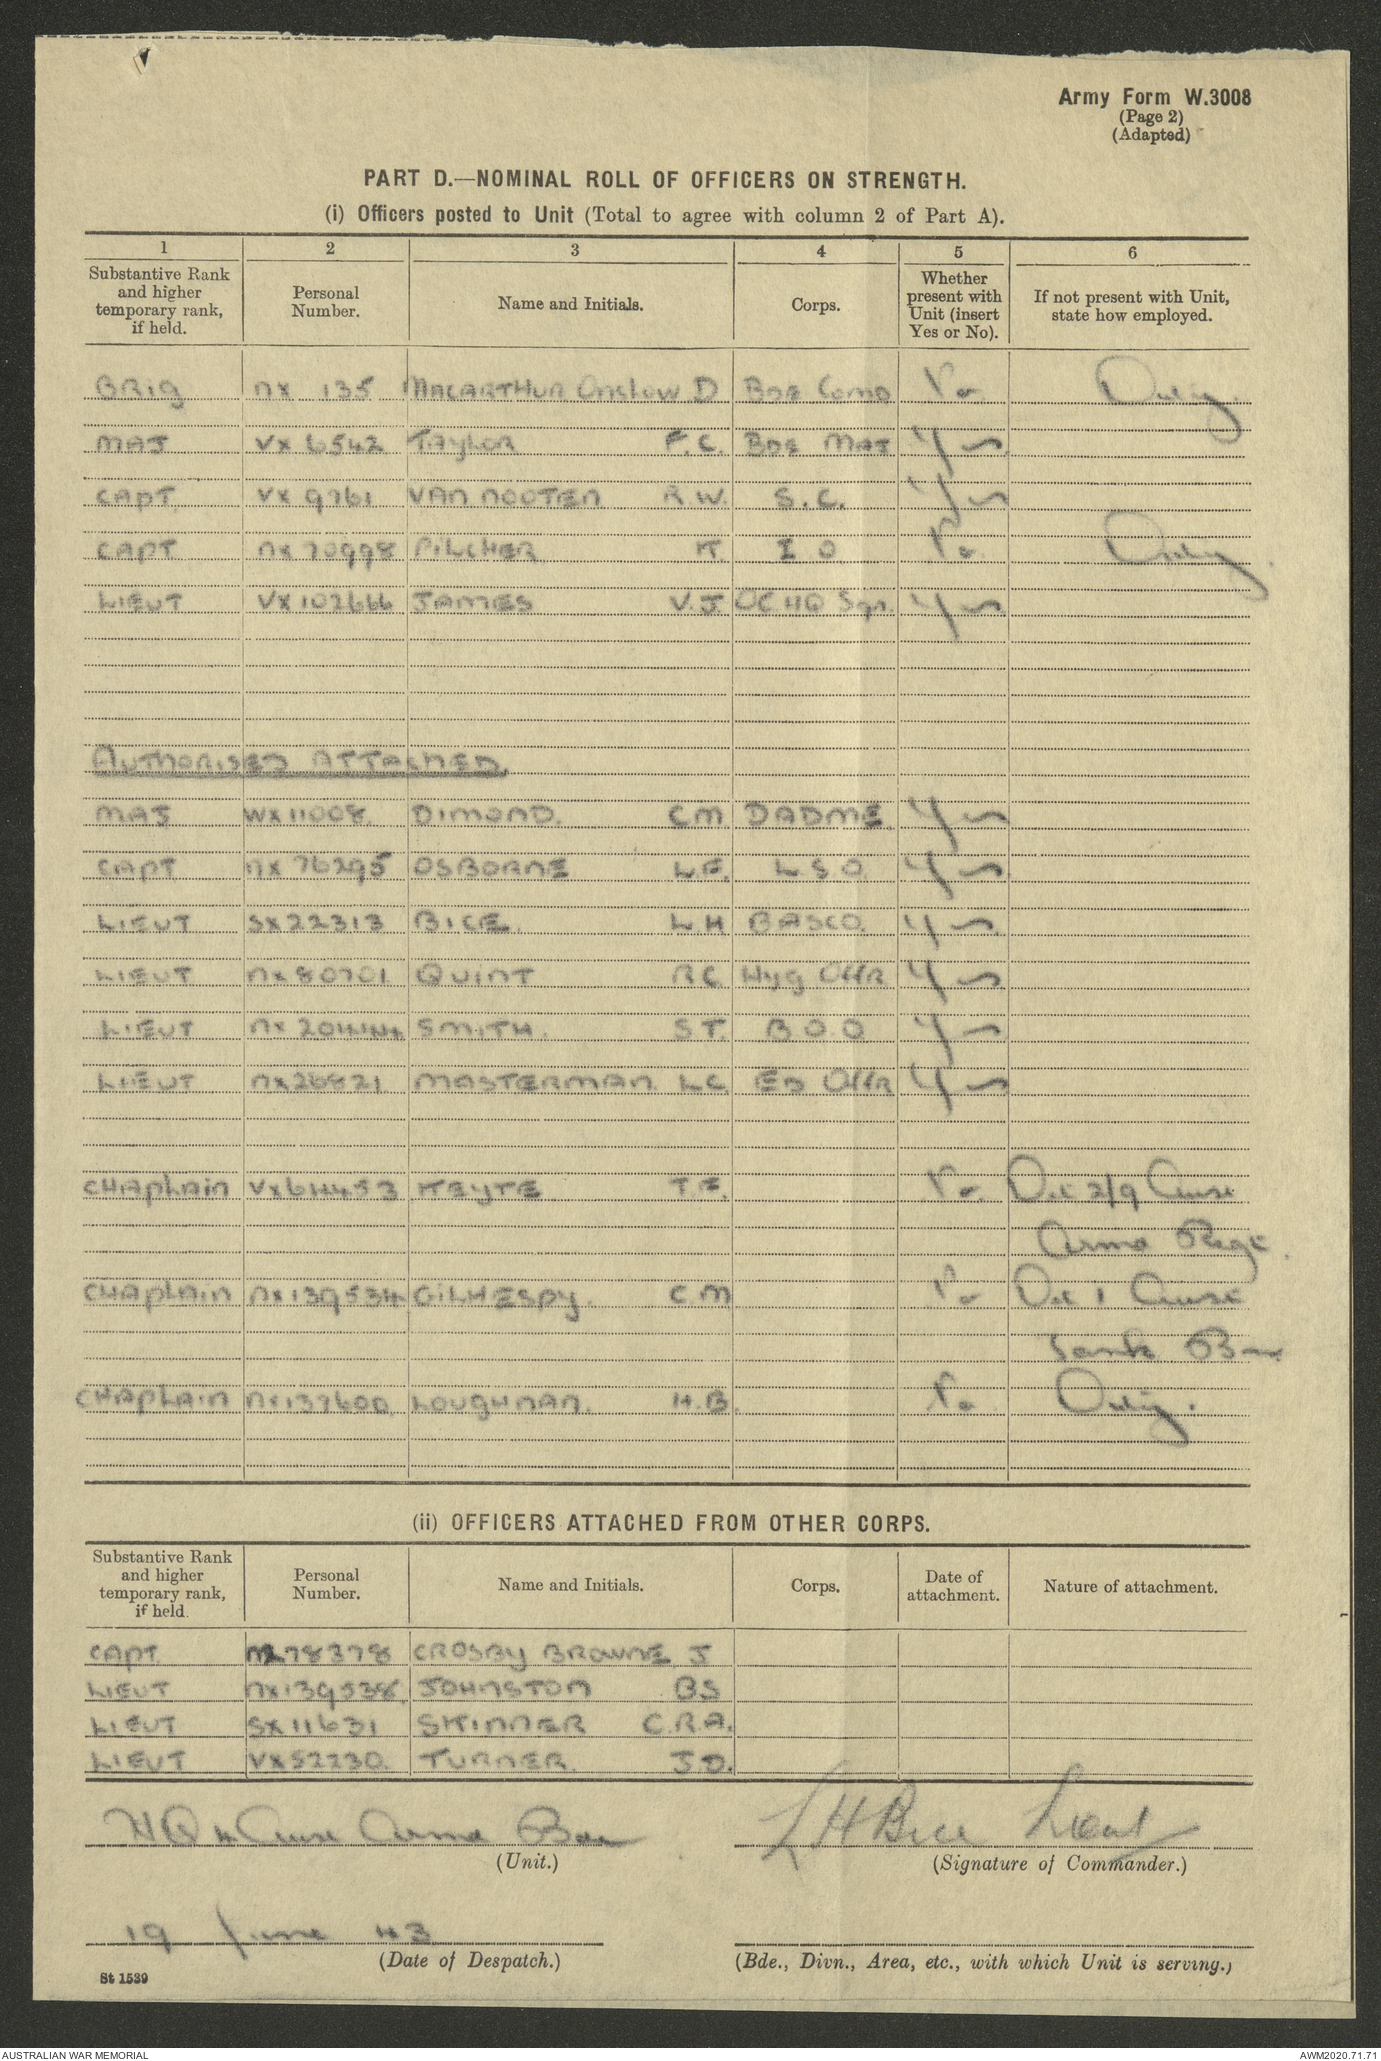 Army Form W.3008
(Page 2)
(Adapted)
PART D.—NOMINAL ROLL OF OFFICERS ON STRENGTH.
(i) Officers posted to Unit (Total to agree with column 2 of Part A).
1 2 3 4 5 6
Substantive Rank and higher temporary rank, if held. Personal Number. Name and Initials. Corps. Whether present with Unit (insert Yes or No). If not present with Unit, state how employed.
BRIG NX 135 MACARTHUR Onslow D Bde Comd No Duty.
MAJ VX 6542 TAYLOR F.C. BDE MAJ Yes
CAPT. VX 9761 VAN NOOTEN R.W. S.C. Yes
CAPT NX 70998 PILCHER K. I O No Duty
LIEUT VX 102666 JAMES V.J. OC HQ Sqn. Yes
AUTHORISED ATTACHED.
MAJ WX11008. DIMOND. C M DADME. Yes
CAPT NX 76295 OSBORNE L.F. L S O. Yes
LIEUT SX22313 BICE. L.H BASCO. Yes
LIEUT NX80701 QUINT R C. Hyg Offr Yes
LIEUT NX 204444 SMITH. S T. B O O Yes
LIEUT NX26821 MASTERMAN. L C. ED Offr Yes
CHAPLAIN VX64453 KEYTE T.F. No. Det 2/9 Aust
Armd Regt.
CHAPLAIN NX139534 GILHESPY. C M No Det 1 Aust
Tank Bn
CHAPLAIN NX137600 LOUGHNAN. H.B. No Duty.
(ii) OFFICERS ATTACHED FROM OTHER CORPS.
Substantive Rank and higher temporary rank, if held. Personal Number. Name and Initials. Corps. Date of attachment. Nature of attachment.
CAPT. 78378 CROSBY BROWNE J
LIEUT NX139538. JOHNSTON B S
LIEUT SX11631 SKINNER C.R.A.
LIEUT VX52230. TURNER. J.D.
HQ 4 Aust Armd Bde L H Bice Lieut
(Unit.) (Signature of Commander.)
19 June 43
(Date of Despatch.) (Bde., Divn., Area, etc., with which Unit is serving.)
St 1539
AUSTRALIAN WAR MEMORIAL AWM2020.71.71